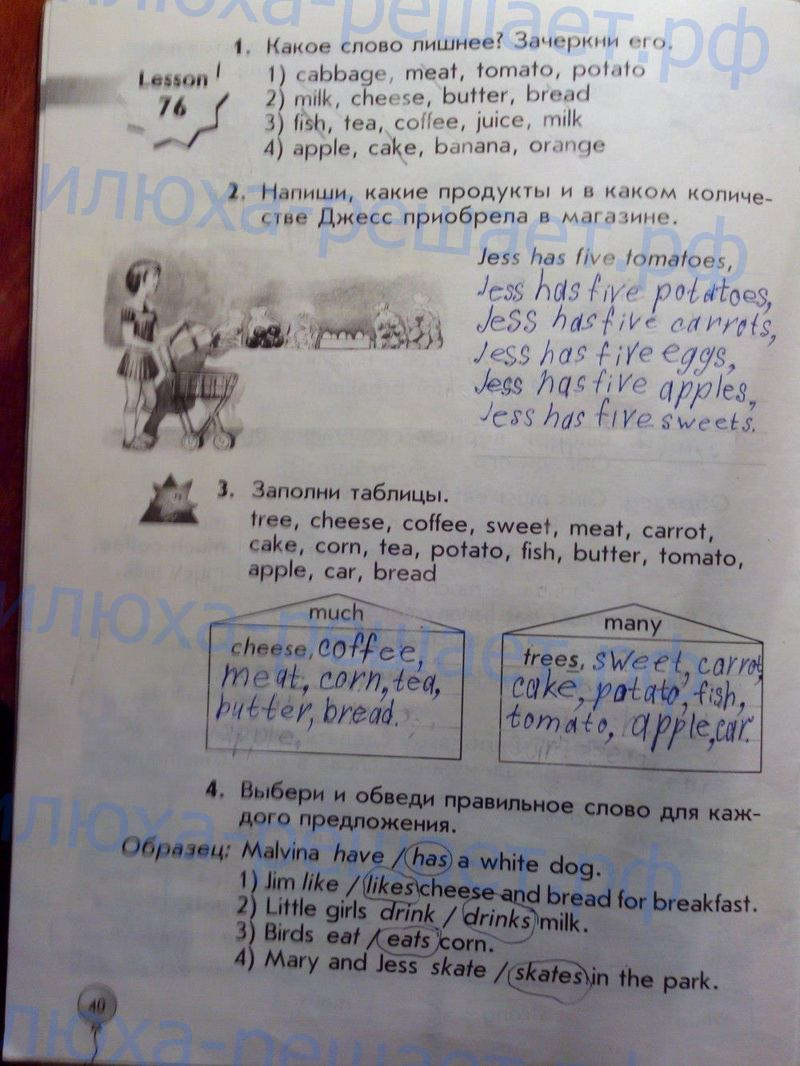 илюха-решает.рф
1. Какое слово лишнее? Зачеркни его.
Lesson
76
1) cabbage, meat, tomato, potato
2) milk, cheese, butter, bread
3) fish, tea, coffee, juice, milk
4) apple, cake, banana, orange
илюха-решает.рф
2. Напиши, какие продукты и в каком количе-
стве Джесс приобрела в магазине.
Jess has five tomatoes,
Jess has five potatoes,
Jess has five carrots,
Jess has five eggs,
Jess has five apples,
Jess has five sweets.
3. Заполни таблицы.
tree, cheese, coffee, sweet, meat, carrot,
cake, corn, tea, potato, fish, butter, tomato,
apple, car, bread
илюха-решает.рф
much
cheese, coffee,
meat, corn, tea,
butter, bread.
many
trees, sweet, carrot,
cake, potato, fish,
tomato, apple, car.
4. Выбери и обведи правильное слово для каж-
дого предложения.
илюха-решает.рф
Образец: Malvina have / has a white dog.
1) Jim like / likes cheese and bread for breakfast.
2) Little girls drink / drinks milk.
3) Birds eat / eats corn.
4) Mary and Jess skate / skates in the park.
40
илюха-решает.рф